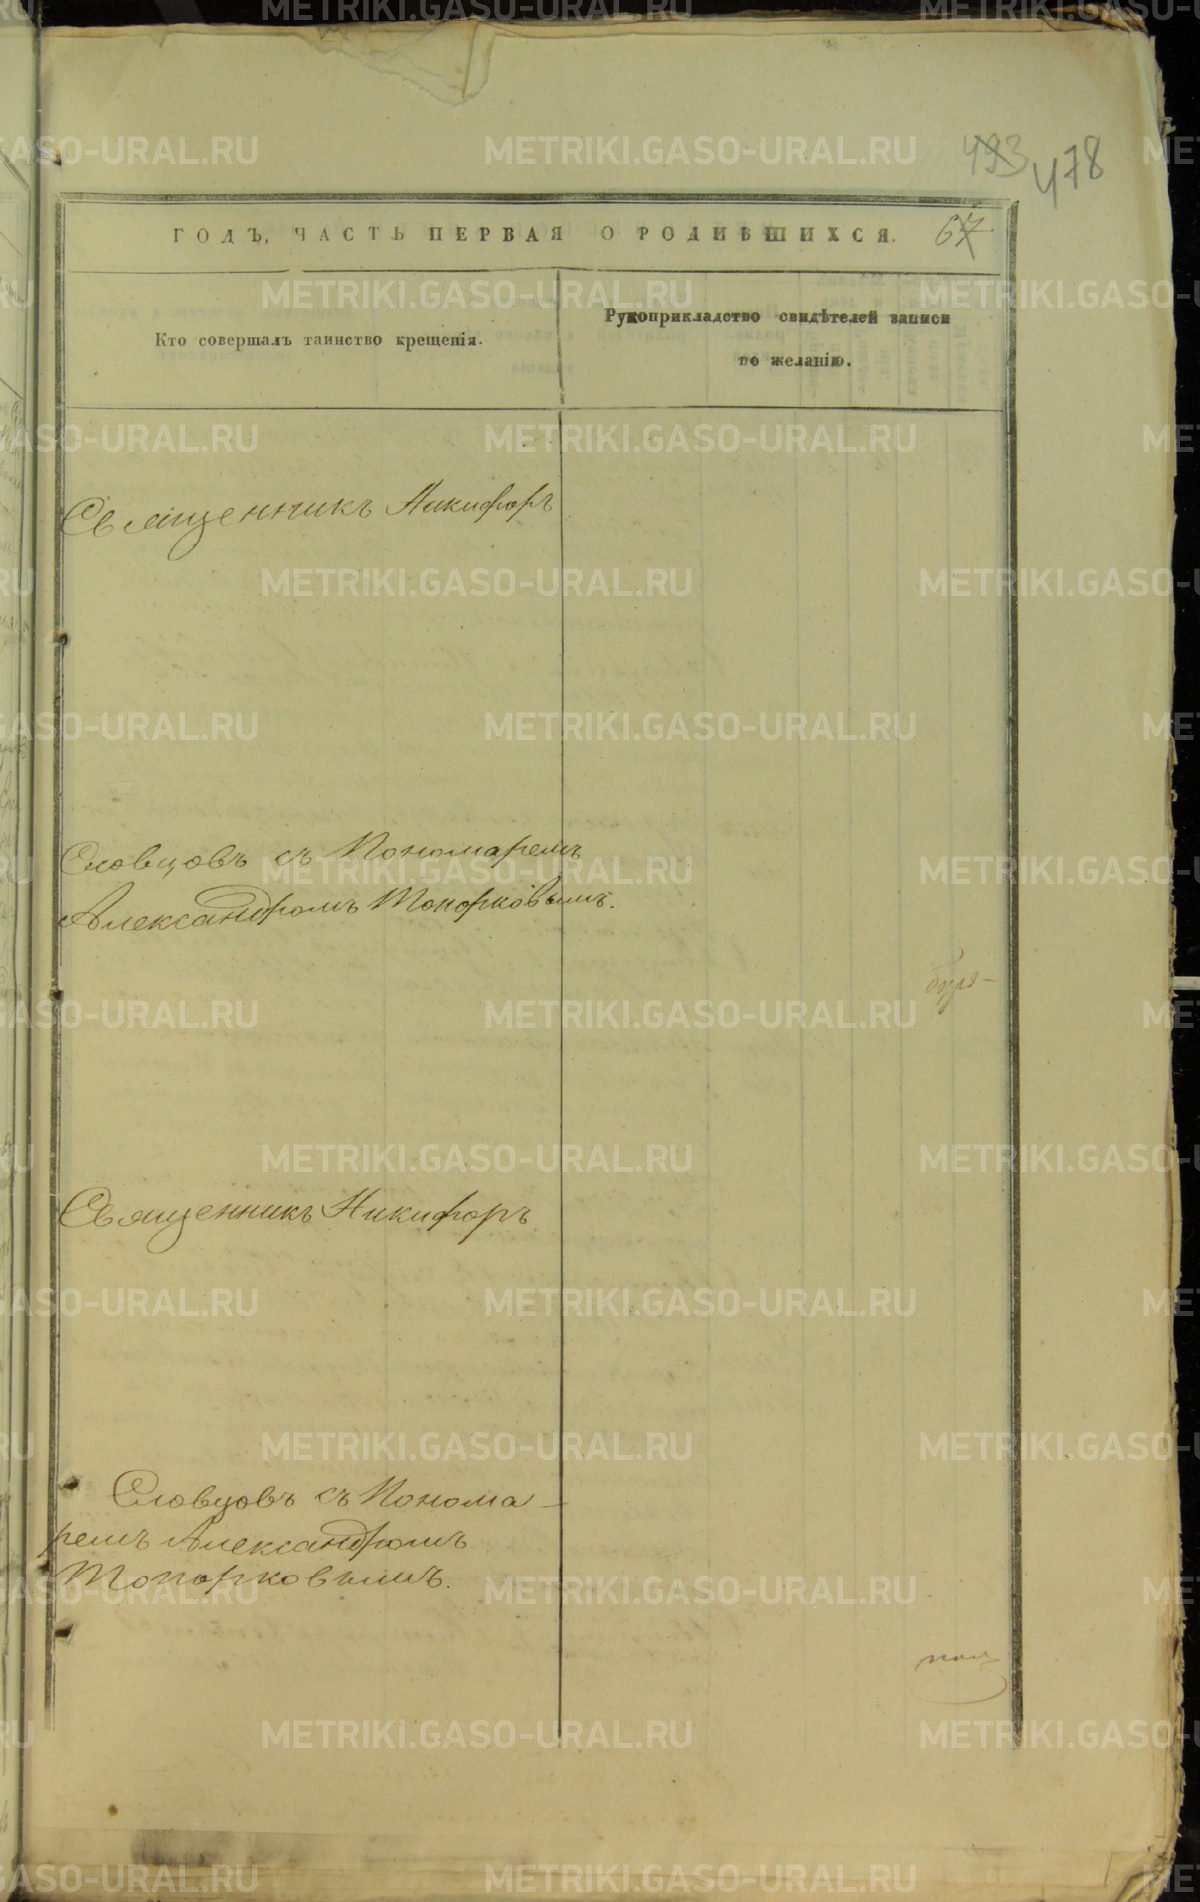 493 478
ГОДЪ, ЧАСТЬ ПЕРВАЯ О РОДИВШИХСЯ. 67
Кто совершалъ таинство крещенія.
Рукоприкладство свидѣтелей записи
по желанію.
Священникъ Никифоръ
Словцовъ съ Пономаремъ
Александромъ Топорковымъ.
Священникъ Никифоръ
Словцовъ съ Понома-
ремъ Александромъ
Топорковымъ.
METRIKI.GASO-URAL.RU